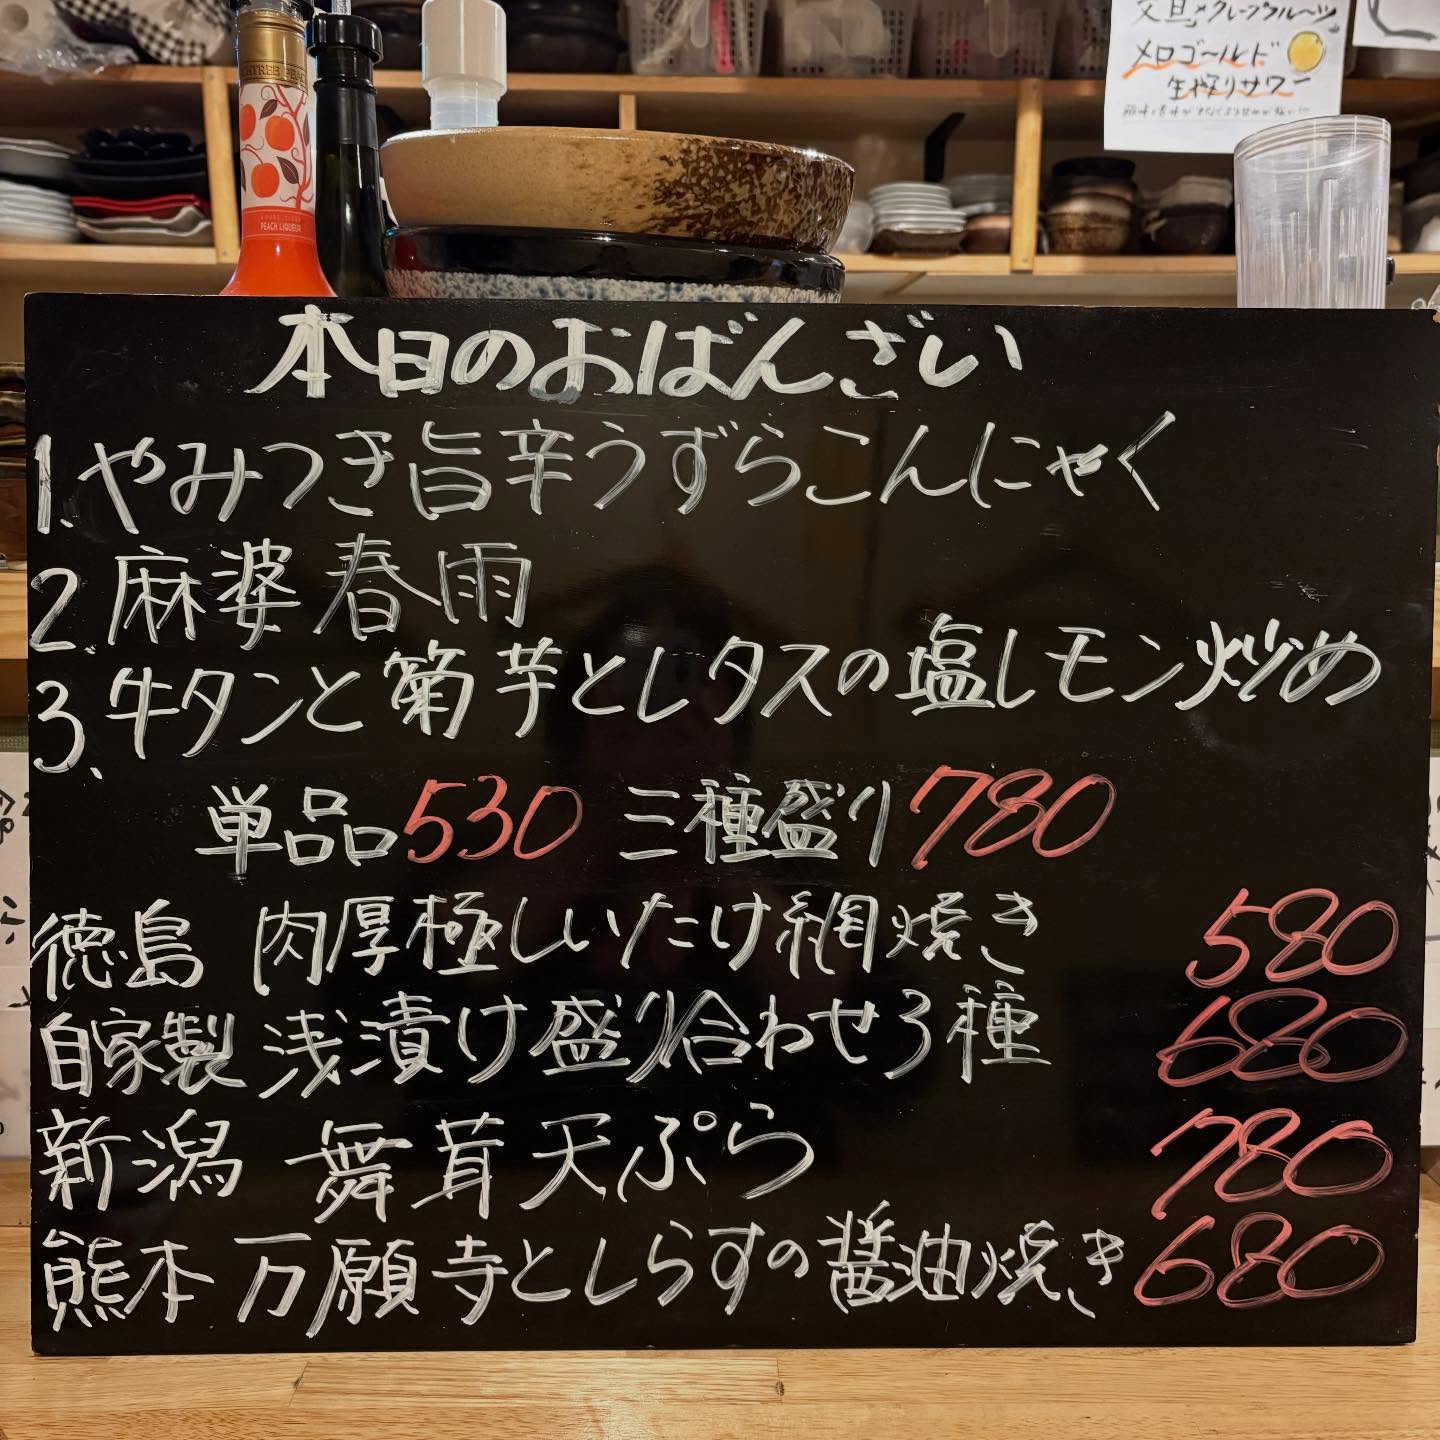 文旦×グレープフルーツ
メロゴールド
生搾りサワー
PEACH LIQUEUR
本日のおばんざい
1.やみつき旨辛うずらこんにゃく
2.麻婆春雨
3.牛タンと菊芋とレタスの塩レモン炒め
単品530 三種盛り780
徳島 肉厚極しいたけ網焼き 580
自家製 浅漬け盛り合わせ3種 680
新潟 舞茸天ぷら 780
熊本 万願寺としらすの醤油焼き 680